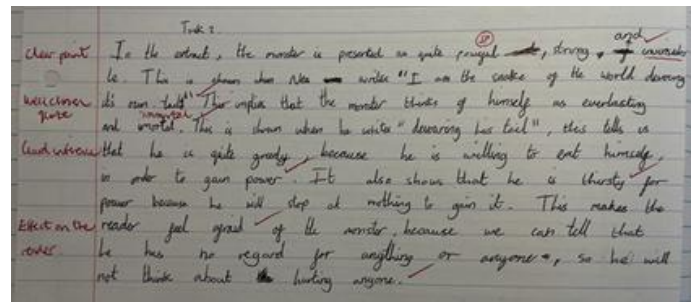 Task 2.
clear point In the extract, the monster is presented as quite powerful sp, strong, and
le. This is shown when Ness writes "I am the snake of the world devouring
well chosen quote it's own tail" This implies that the monster thinks of himself as everlasting
and immortal. This is shown when he writes "devouring his tail", this tells us
Good inference that he is quite greedy, because he is willing to eat himself,
in order to gain power. It also shows that he is thirsty for
power because he will stop at nothing to gain it. This makes the
Effect on the reader. reader feel afraid of the monster, because we can tell that
he has no regard for anything or anyone, so he will
not think about hurting anyone.